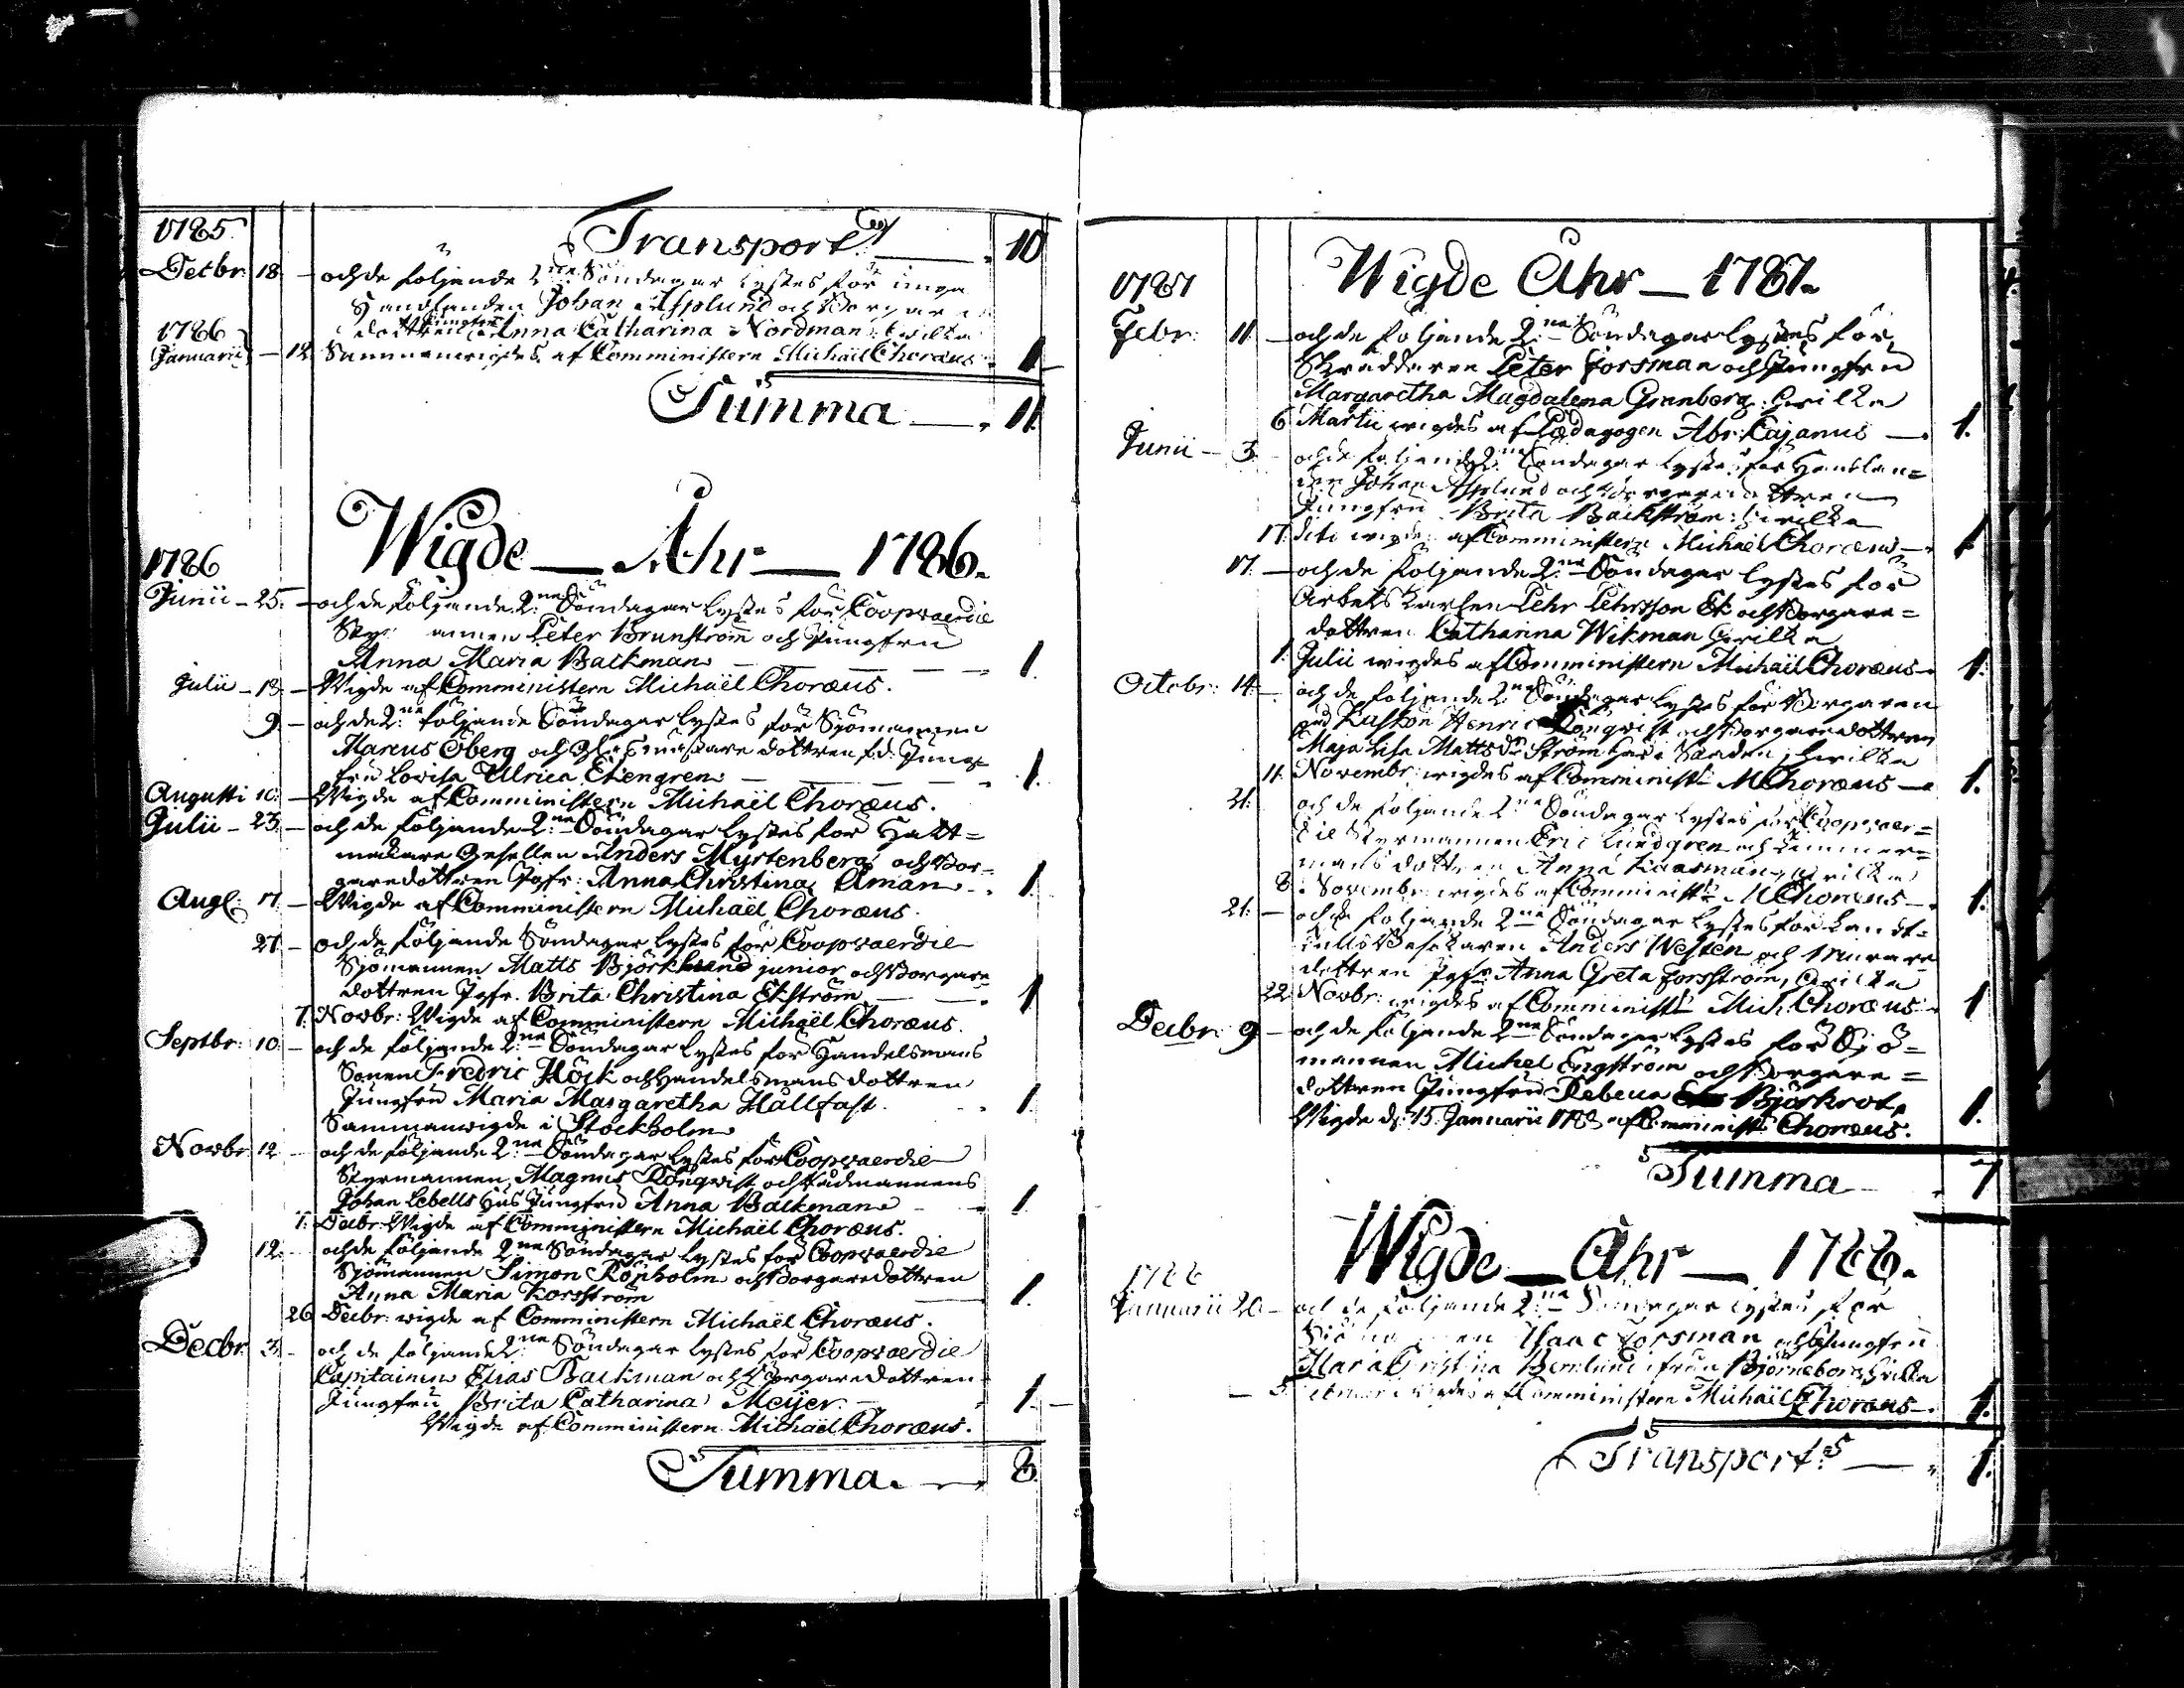 1785
Transport 10
Decbr: 18. och de följande 2:ne Söndagar lystes för unga
Handlanden Johan Asplund och Borgare
dottren Jungfru Anna Catharina Nordman: hvilka
1786
Januarii 12. Sammanvigdes af Comministern Michaël Choræus 1
Summa 11.
Wigde Åhr 1786.
1786
Junii 25. och de följande 2:ne Söndagar lystes för Coopvaerdie
Styrmannen Peter Brunström och Jungfru
Anna Maria Backman 1.
Julii 13. Wigde af Comministern Michaël Choræus.
9. och de 2:ne följande Söndagar lystes för Sjömannen
Marcus Öberg och Glasmästare dottren fd. Jung-
fru Lovisa Ulrica Ekengren 1.
Augusti 10. Wigde af Comministern Michaël Choræus.
Julii 23. och de följande 2:ne Söndagar lystes för Hatt=
makare Gesellen Anders Myrtenberg och Bor-
garedottren Jgfr: Anna Christina Åman 1.
Aug: 17. Wigde af Comministern Michaël Choræus.
27. och de följande Söndagar lystes för Coopvaerdie
Sjömannen Matts Björklund junior och Borgare
dottren Jgfr. Brita Christina Ekström 1
7. Novbr: Wigde af Comministern Michaël Choræus.
Septbr: 10. och de följande 2:ne Söndagar lystes för Handelsmans
Sonen Fredric Höck och Handelsmans dottren
Jungfru Maria Margaretha Hallfast. 1.
Sammanwigde i Stockholm
Novbr 12. och de följande 2:ne Söndagar lystes för Coopvaerdie
Styrmannen Magnus Rönqvist och Rådmannens
Johan Lebells Hus Jungfru Anna Backman 1
7. Decbr: Wigde af Comministern Michaël Choræus.
12. och de följande 2:ne Söndagar lystes för Coopvaerdie
Sjömannen Simon Rönholm och Borgaredottren
Anna Maria Korsström 1.
26 Decbr: wigde af Comministern Michaël Choræus.
Decbr. 3. och de följande 2:ne Söndagar lystes för Coopvaerdie
Capitainen Elias Backman och Borgaredottren
Jungfru Brita Catharina Meijer. 1.
Wigde af Comministern Michaël Choræus.
Summa. 8.
Wigde Åhr 1787.
1787
Febr: 11. och de följande 2:ne Söndagar lystes för
Skräddaren Peter Forsman och Jungfru
Margaretha Magdalena Granberg: hvilka
6 Martii wigdes af Pædagogen Abr: Cajanus 1.
Junii 3. och de följande 2:ne Söndagar lystes för Handlan=
den Johan Asplund och Borgaredottren
Jungfru Brita Backström: hvilka
17. dito wigdes af Comministern Michaël Choræus 1
17. och de följande 2:ne Söndagar lystes för
Arbetskarlen Pehr Pehrsson Ek och Borgare=
dottren Catharina Wikman hvilka
1. Julii wigdes af Comministern Michaël Choræus 1.
Octobr: 14. och de följande 2:ne Söndagar lystes för Borgaren
Kaskön Henric Rönqvist och Borgaredottren
Maja Lisa Matts dr Ström hvilka
11. Novembr: wigdes af Comminist: M Choræus 1.
21. och de följande 2:ne Söndagar lystes för Coopvaer=
die Styrmannen Eric Lundgren och Timmer=
mans dottren Anna Kaasman, hvilka
8. Novembr: wigdes af Comminist: M Choræus 1.
21. och de följande 2:ne Söndagar lystes för Landt=
tulls Besökaren Anders Westen och Murare
dottren Jgfr: Anna Greta Forsström, hvilka
22. Novbr: wigdes af Comminist: Mich: Choræus 1
Decbr: 9. och de följande 2:ne Söndagar lystes för Sjö=
mannen Michel Engström och Borgare=
dottren Jungfru Rebecca Björkrot,
Wigde d: 15. Januarii 1788 af Comminist: Choræus. 1.
Summa 7
Wigde Åhr 1788.
1788
Januarii 20. och de följande 2:ne Söndagar lystes för
Sjömannen Isaac Forsman och Jungfru
Maria Christina Bernlund ifrån Björneborg hvilka
wigdes af Comministern Michaël Choræus 1.
Transport 1.